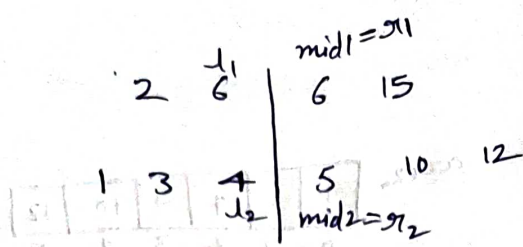 l1 mid1=r1
2 6 | 6 15
1 3 4 | 5 10 12
l2 mid2=r2